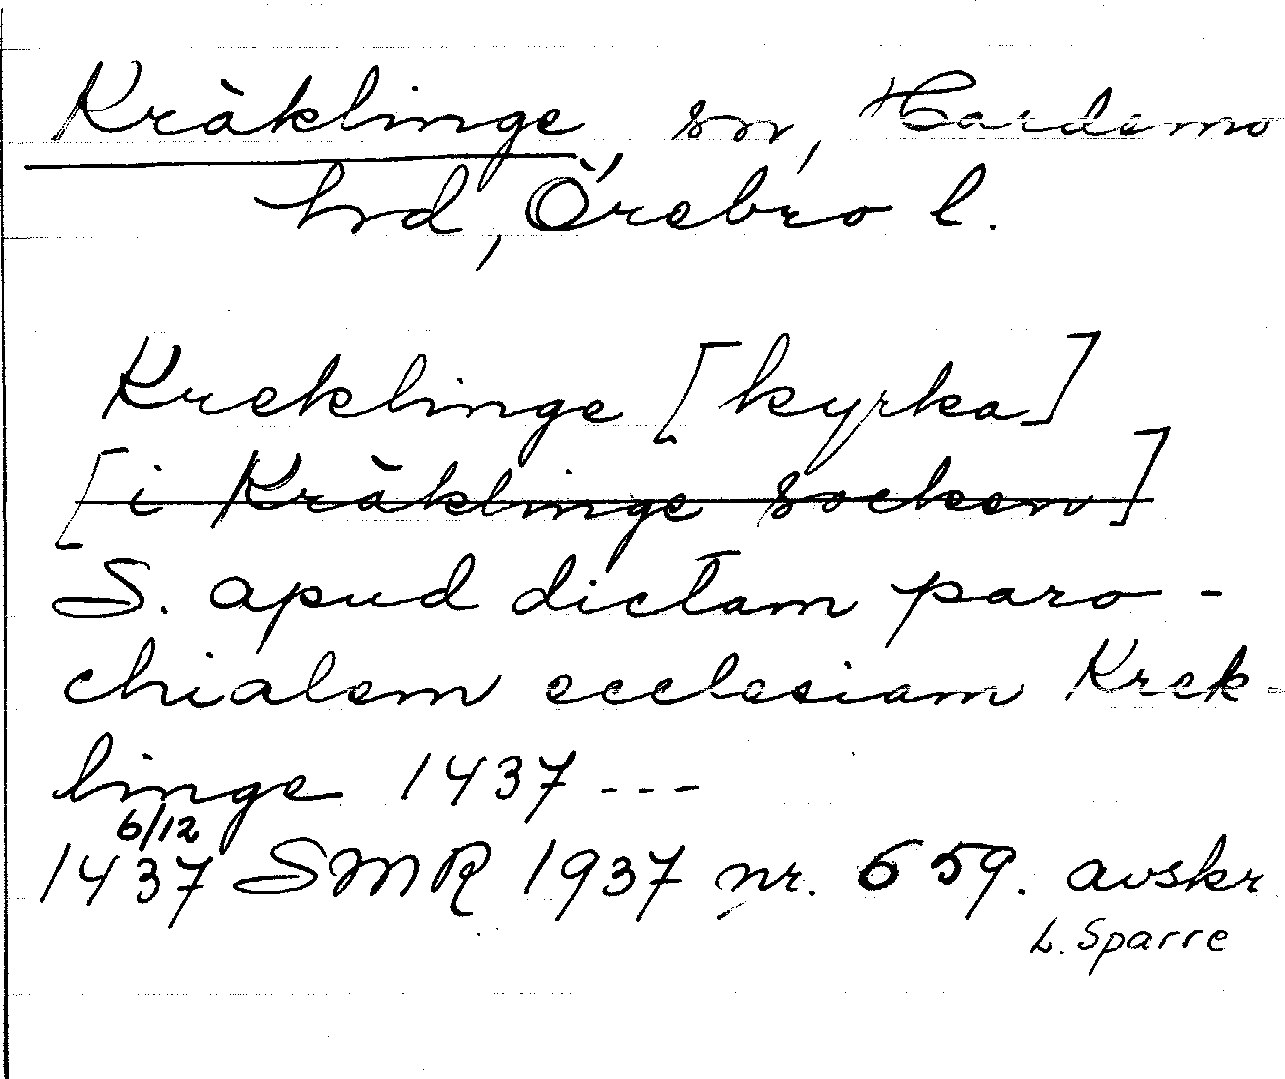 Kräklinge, sn, Hardemo
hrd, Örebro l.
Kreklinge [kyrka]
[i Kräklinge socken]
S. apud dictam paro-
chialem ecclesiam Krek-
linge 1437 ---
6/12
1437 SMR 1937 nr. 659. avskr
L. Sparre